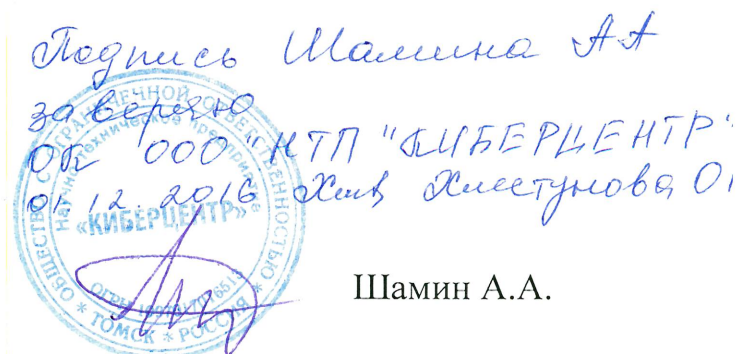 Подпись Шамина АА
заверяю
ОК ООО "НТП "КИБЕРЦЕНТР"
01.12.2016 Хлестунова
ОБЩЕСТВО С ОГРАНИЧЕННОЙ ОТВЕТСТВЕННОСТЬЮ
Научно-техническое предприятие
«КИБЕРЦЕНТР»
ОГРН
* ТОМСК * РОССИЯ *
Шамин А.А.